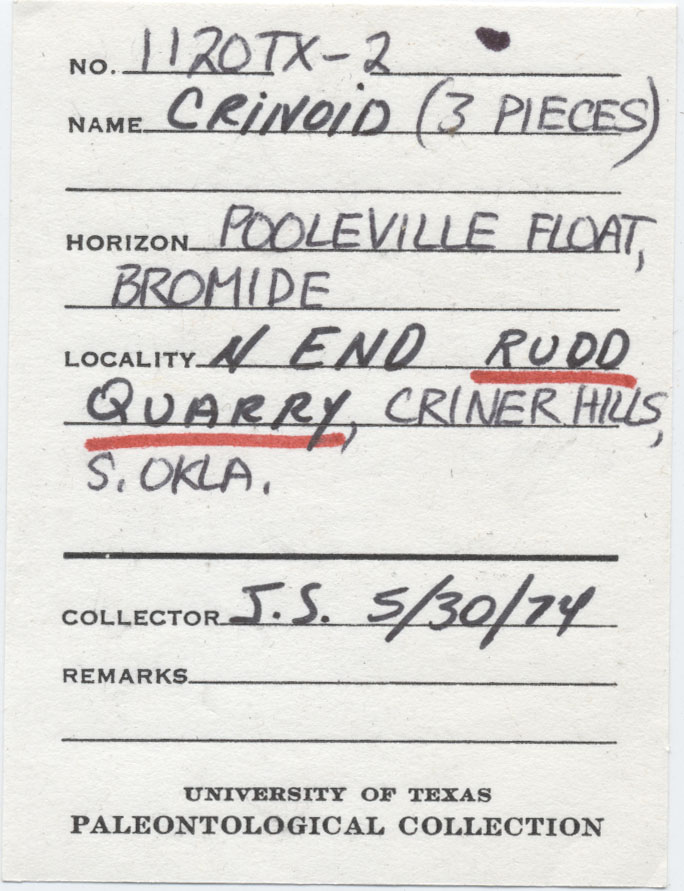 NO. 1120TX-2
NAME CRINOID (3 PIECES)
HORIZON POOLEVILLE FLOAT,
BROMIDE
LOCALITY N END RUDD
QUARRY, CRINER HILLS,
S. OKLA.
COLLECTOR J.S. 5/30/74
REMARKS
UNIVERSITY OF TEXAS
PALEONTOLOGICAL COLLECTION